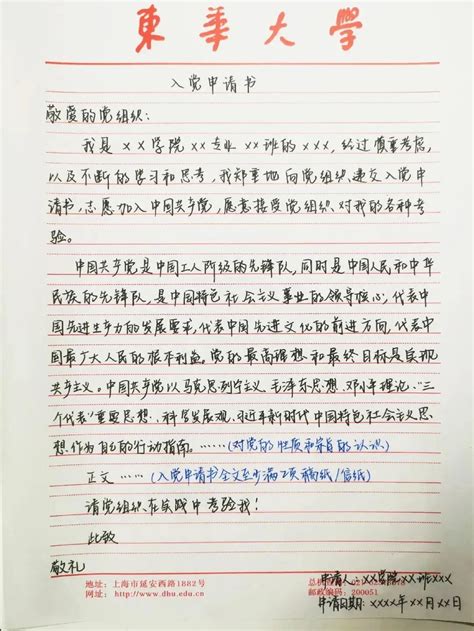 東華大學
入党申请书
敬爱的党组织：
我是××学院××专业××班的×××，经过慎重考虑，
以及不断的学习和思考，我郑重地向党组织递交入党申
请书，志愿加入中国共产党，愿意接受党组织对我的各种考
验。
中国共产党是中国工人阶级的先锋队，同时是中国人民和中华
民族的先锋队，是中国特色社会主义事业的领导核心，代表中
国先进生产力的发展要求，代表中国先进文化的前进方向，代表中国
最广大人民的根本利益。党的最高理想和最终目标是实现
共产主义。中国共产党以马克思列宁主义、毛泽东思想、邓小平理论、“三
个代表”重要思想、科学发展观、习近平新时代中国特色社会主义思
想作为自己的行动指南。……(对党的性质和宗旨的认识)
正文……(入党申请书全文至少满2页稿纸/信纸)
请党组织在实践中考验我！
此致
敬礼
申请人：××学院××班×××
地址：上海市延安西路1882号
网址：http://www.dhu.edu.cn 邮政编码：200051
申请日期：××××年××月××日